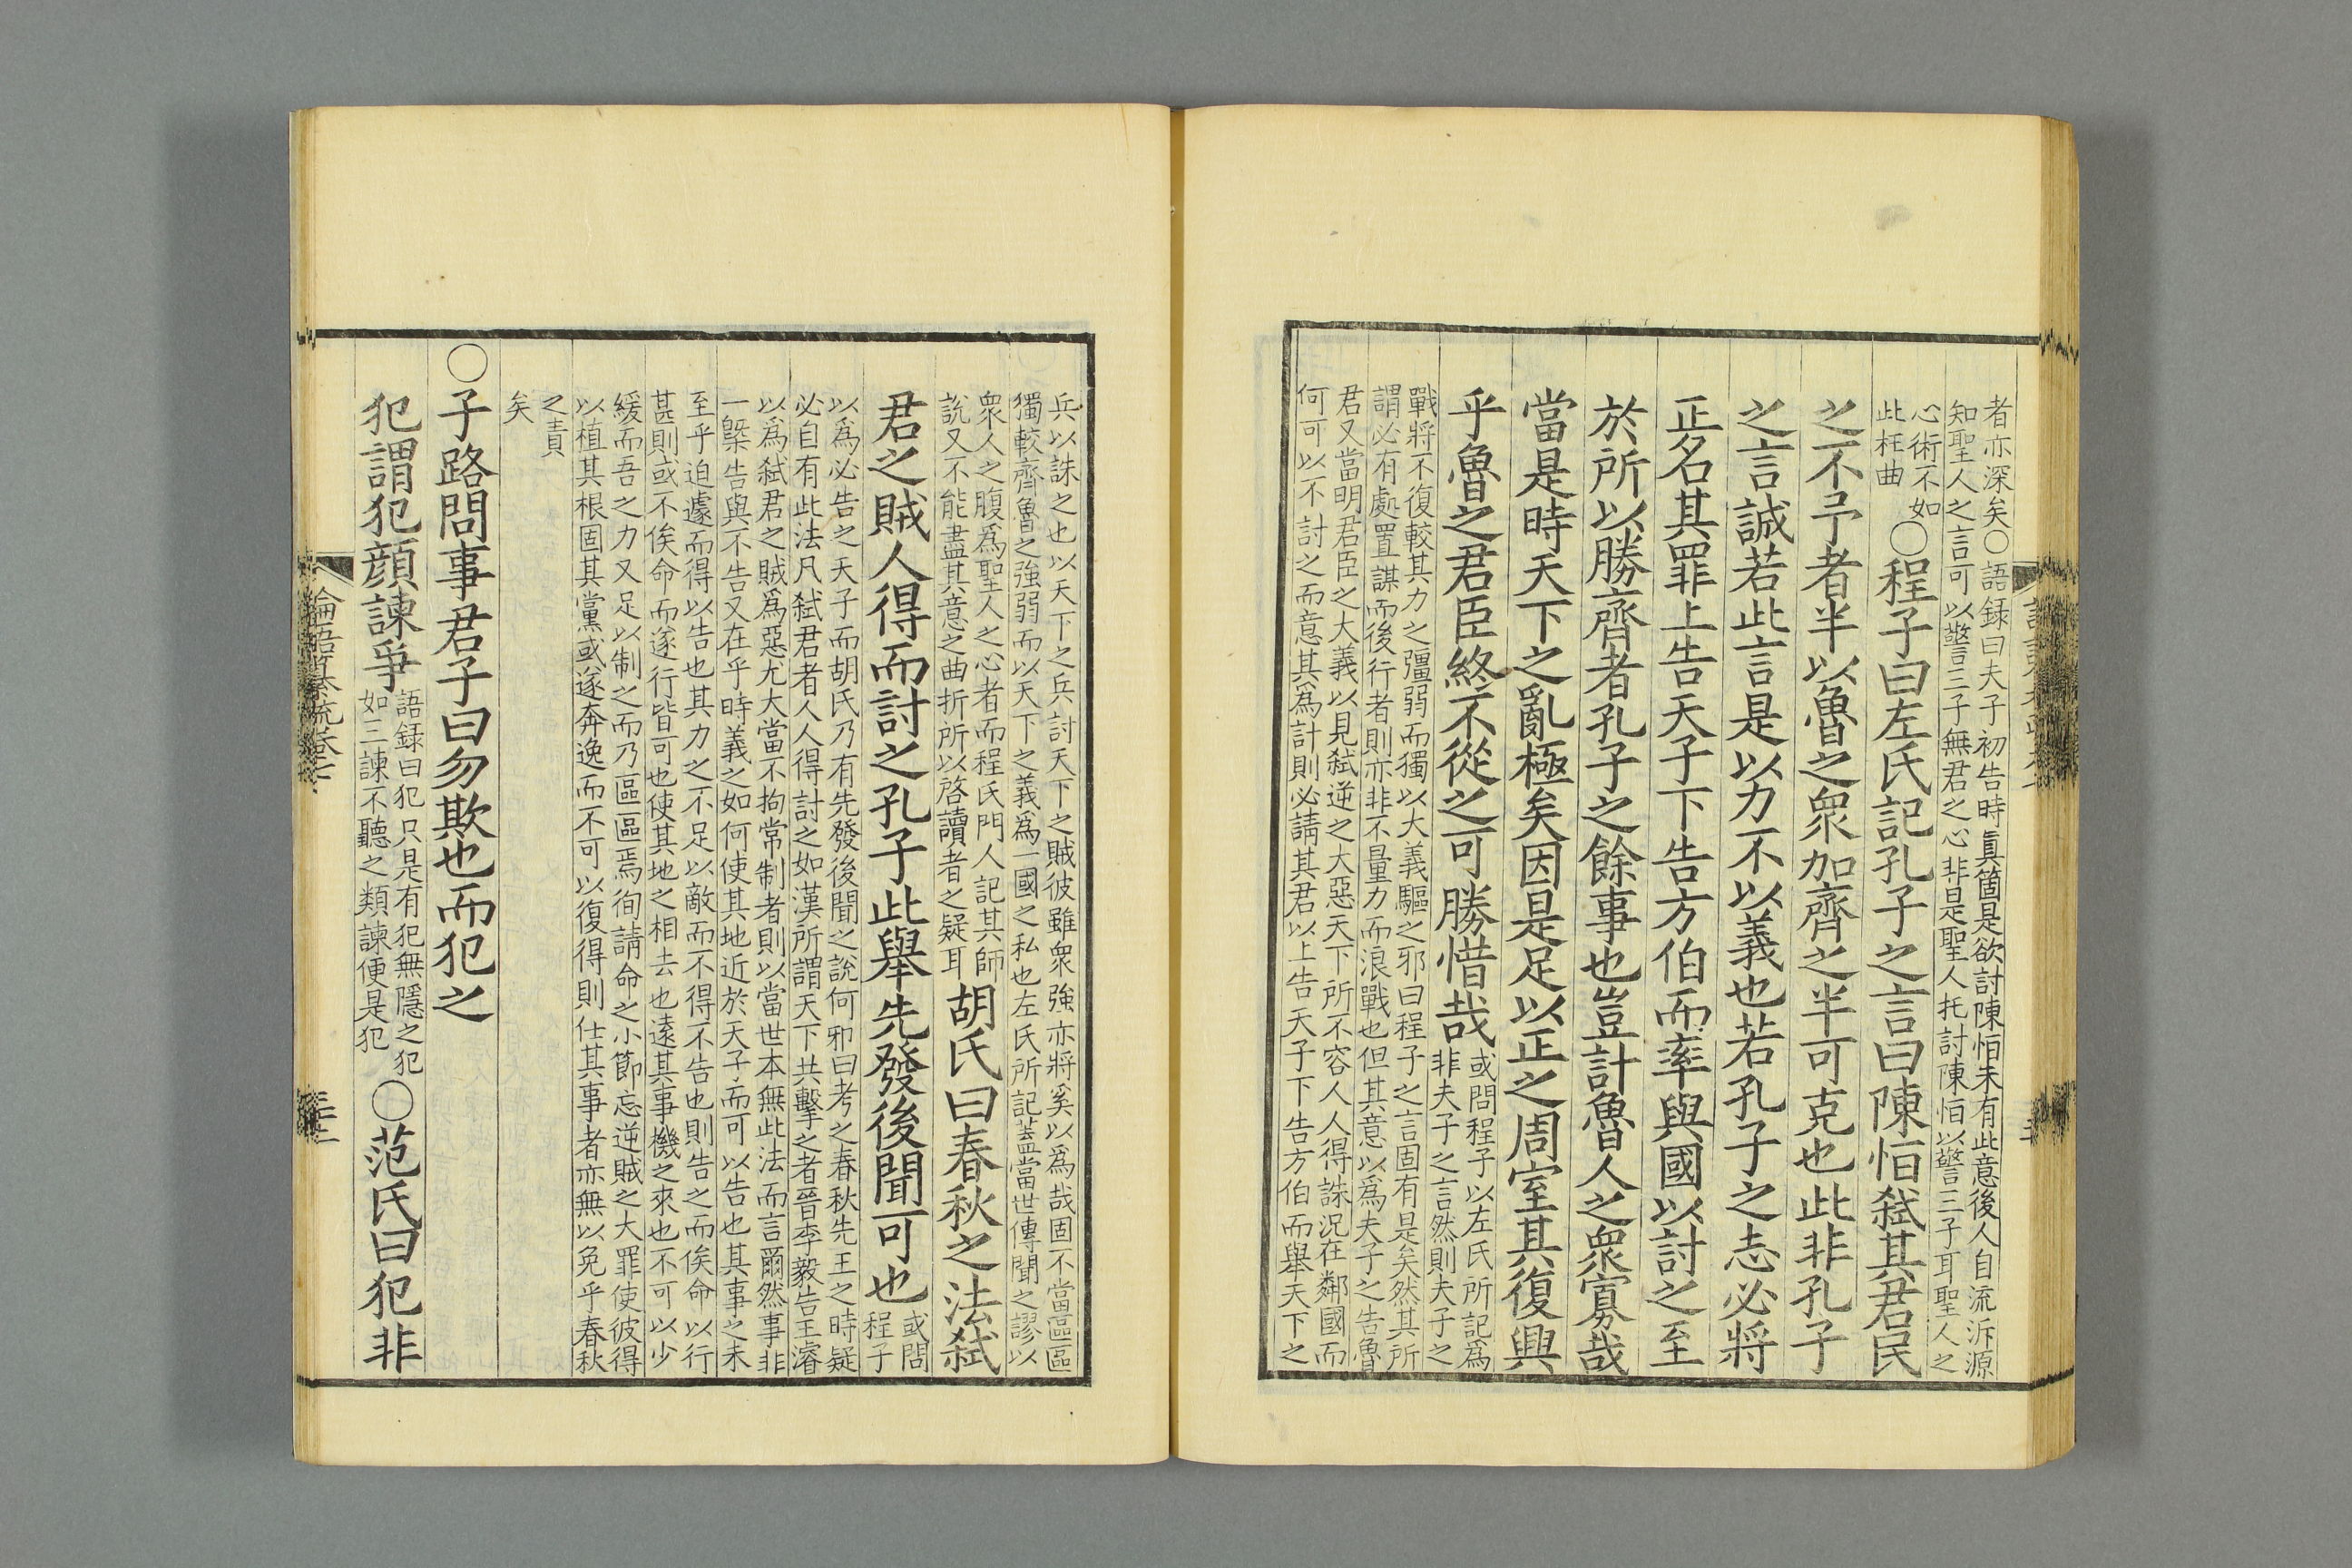 者亦深矣○語録曰夫子初告時眞箇是欲討陳恒未有此意後人自流泝源
知聖人之言可以警三子無君之心非是聖人托討陳恒以警三子耳聖人之
心術不如
此枉曲
○程子曰左氏記孔子之言曰陳恒弑其君民
之不予者半以魯之衆加齊之半可克也此非孔子
之言誠若此言是以力不以義也若孔子之志必將
正名其罪上告天子下告方伯而率與國以討之至
於所以勝齊者孔子之餘事也豈計魯人之衆寡哉
當是時天下之亂極矣因是足以正之周室其復興
乎魯之君臣終不從之可勝惜哉
或問程子以左氏所記為
非夫子之言然則夫子之
戰將不復較其力之彊弱而獨以大義驅之邪曰程子之言固有是矣然其所
謂必有處置謀而後行者則亦非不量力而浪戰也但其意以為夫子之告魯
君又當明君臣之大義以見弑逆之大惡天下所不容人人得誅況在鄰國而
何可以不討之而意其為計則必請其君以上告天子下告方伯而舉天下之
兵以誅之也以天下之兵討天下之賊彼雖衆強亦將奚以為哉固不當區區
獨較齊魯之強弱而以天下之義為一國之私也左氏所記蓋當世傳聞之謬以
衆人之腹為聖人之心者而程氏門人記其師
說又不能盡其意之曲折所以啓讀者之疑耳
胡氏曰春秋之法弑
君之賊人得而討之孔子此舉先發後聞可也
或問
程子
以為必告之天子而胡氏乃有先發後聞之說何邪曰考之春秋先王之時疑
必自有此法凡弑君者人人得討之如漢所謂天下共擊之者晉李毅告王濬
以為弑君之賊為惡尤大當不拘常制者則以當世本無此法而言爾然事非
一槩告與不告又在乎時義之如何使其地近於天子而可以告也其事之未
至乎迫遽而得以告也其力之不足以敵而不得不告也則告之而俟命以行
甚則或不俟命而遂行皆可也使其地之相去也遠其事機之來也不可以少
緩而吾之力又足以制之而乃區區焉徇請命之小節忘逆賊之大罪使彼得
以植其根固其黨或遂奔逸而不可以復得則任其事者亦無以免乎春秋
之責
矣
○子路問事君子曰勿欺也而犯之
犯謂犯顔諫爭
語録曰犯只是有犯無隱之犯
如三諫不聽之類諫便是犯
○范氏曰犯非
論語纂疏卷七